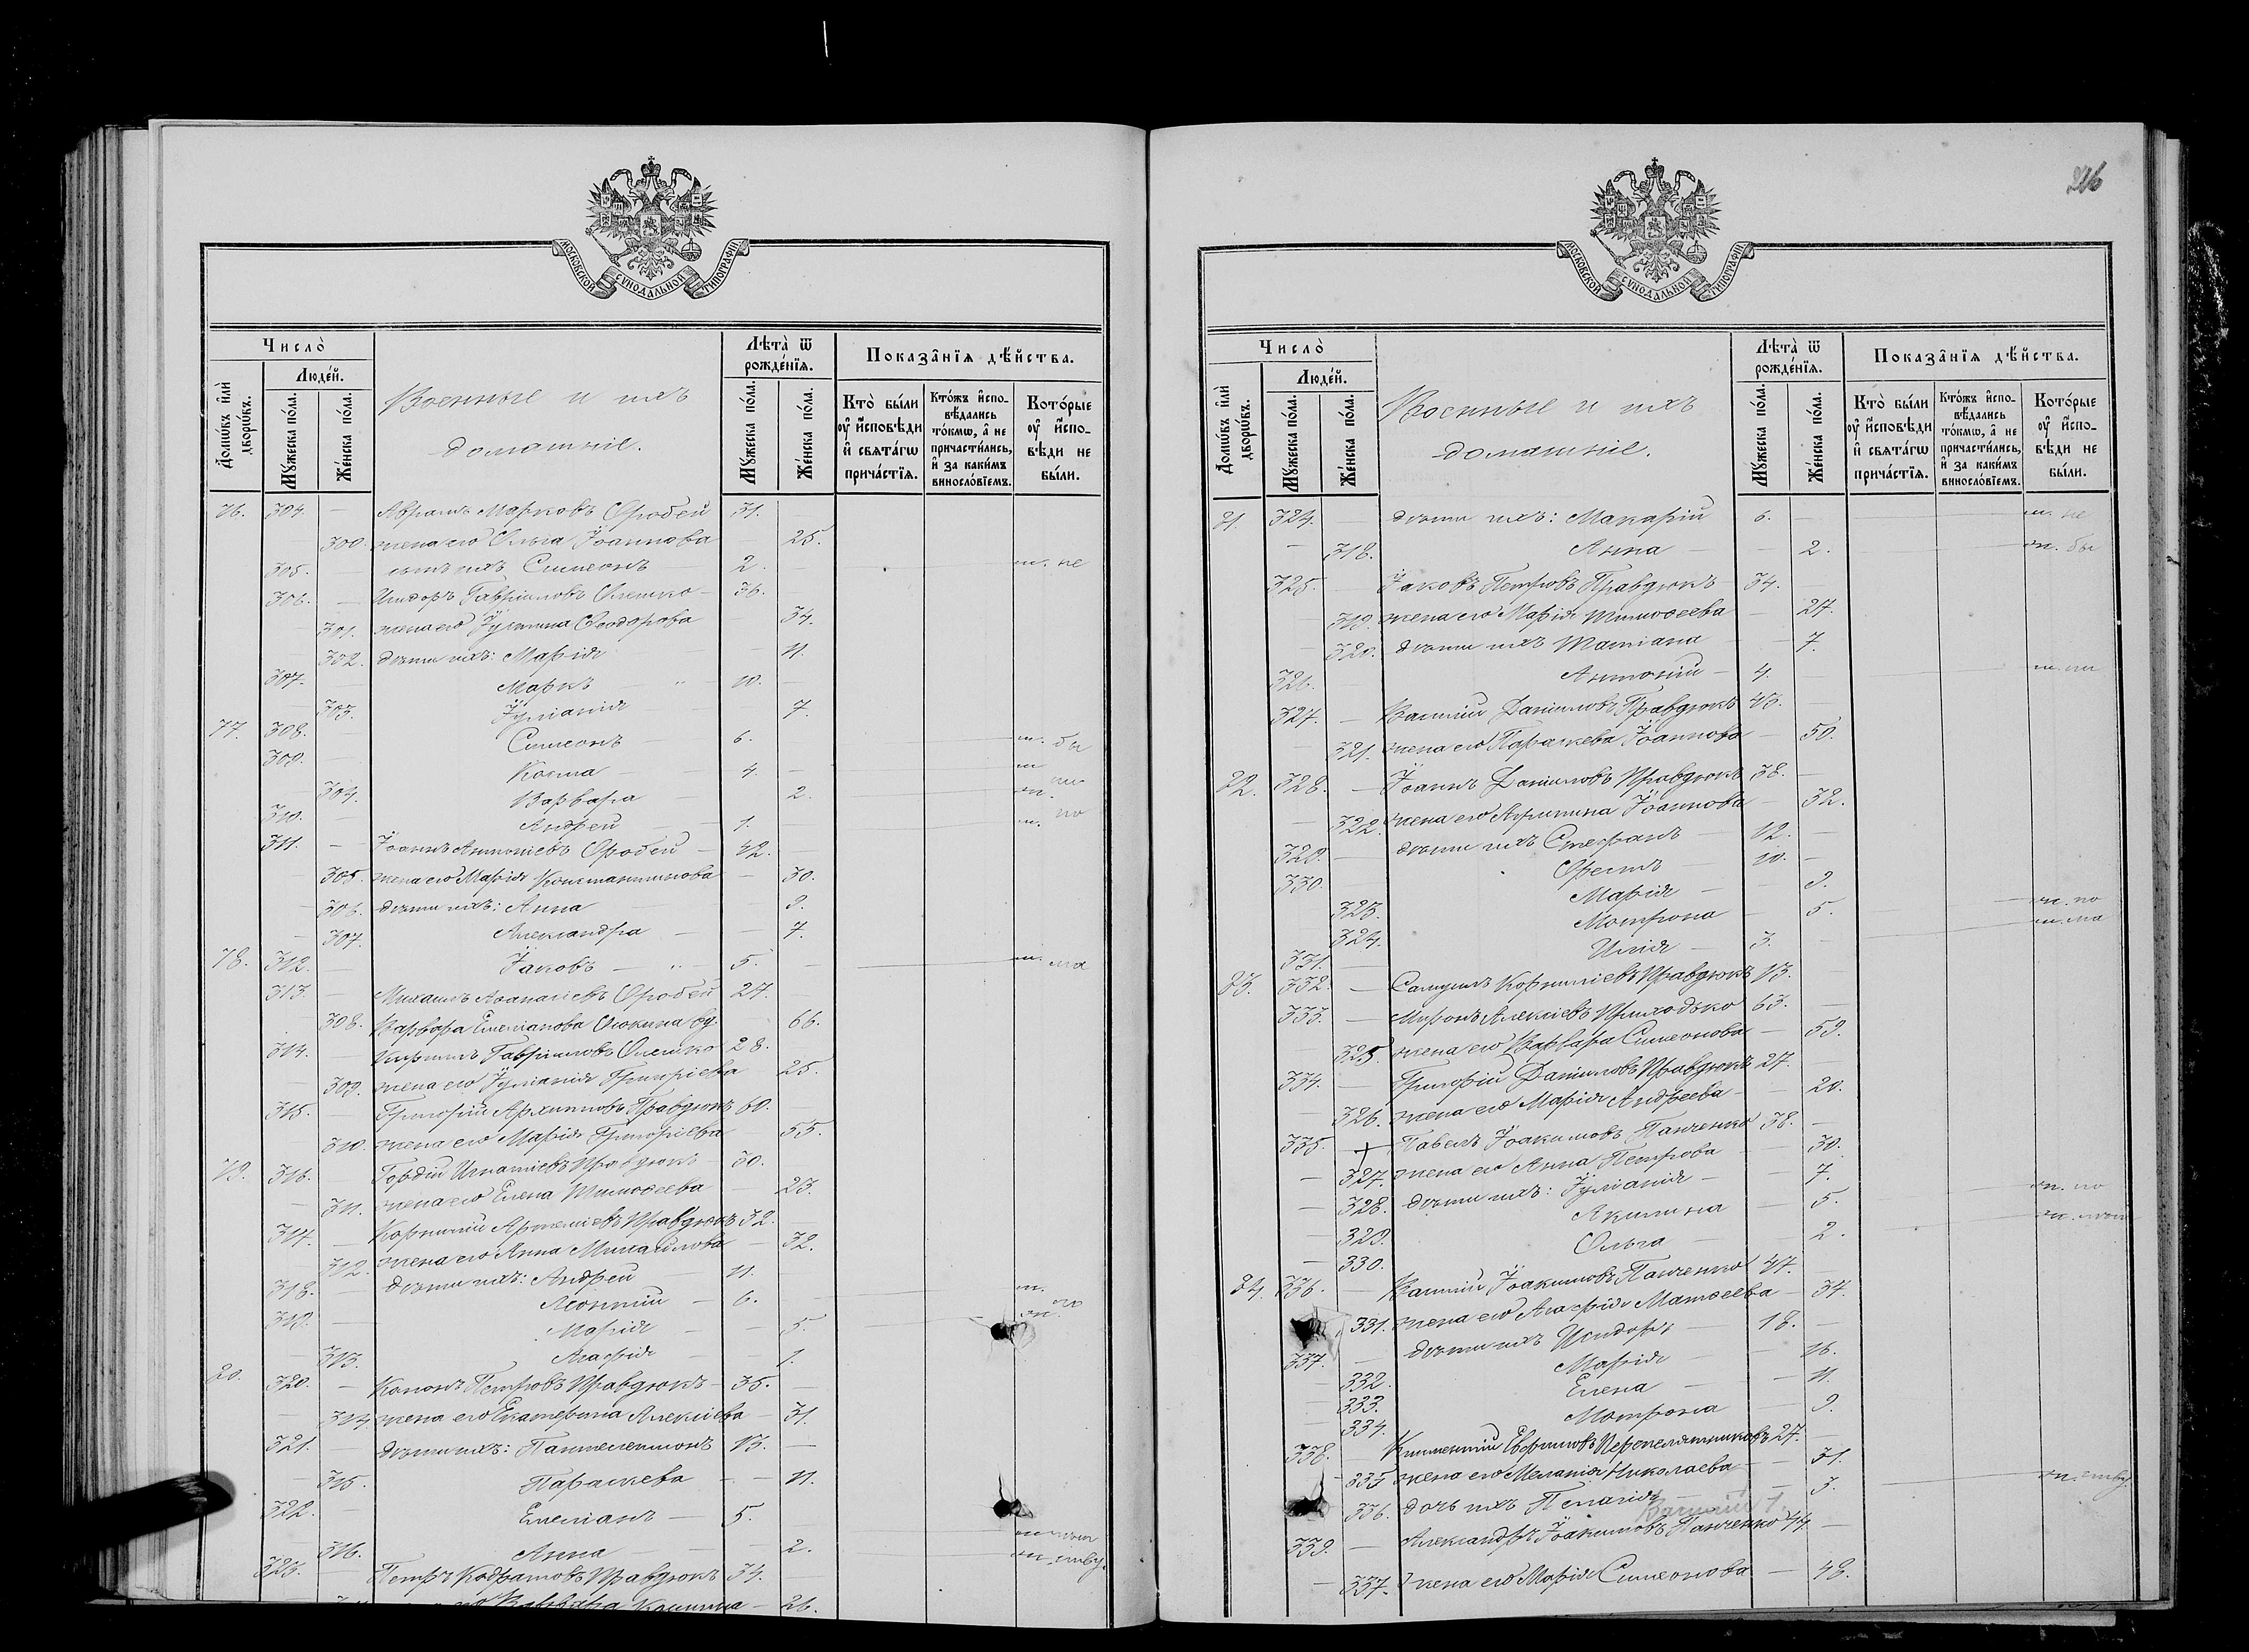 МОСКОВСКОЙ СѴНОДАЛЬНОЙ ТИПОГРАФІИ
Число̀
Людéй.
Домѡ́въ и҆лѝ дворѡ́въ.
Мꙋ́жеска по́ла.
Же́нска по́ла.
Военные и ихъ
домашніе.
Лѣта̀ ѿ рожде́нїѧ.
Мꙋ́жеска по́ла.
Же́нска по́ла.
Показа̑нїѧ дѣ́йства.
Кто̀ бы́ли ᲂу҆ и҆сповѣди и҆ свѧта́гѡ прича́стїѧ.
Кто́жъ и҆сповѣдались то́кмѡ, а҆ не причасти́лись, и҆ за каки́мъ винословїемъ.
Кото́рые ᲂу҆ и҆сповѣди не бы́ли.
76. 304. — Аврамъ Марковъ Оробей 31.
300. жена его Ольга Іоаннова — 25.
305. — сынъ ихъ Симеонъ 2. м. не
306. — Исидоръ Гавріиловъ Олешко — 36.
301. жена его Іустина Ѳеодорова — 34.
302. дѣти ихъ: Марія — 11.
307. — Маркъ — 10. —
303. Іуліанія — 7.
77. 308. — Симеонъ — 6. м. бы
309. — Косма — 4. — м
304. Варвара — 2. ж. ли
310. — Андрей — 1. м. по
311. — Іоаннъ Антоніевъ Оробей — 42.
305. жена его Марія Константинова — 30.
306. дѣти ихъ: Анна — 9.
307. Александра — — 7.
78. 312. Іаковъ — 5. — м. ма
313. — Михаилъ Аѳанасіевъ Оробей 27.
308. Варвара Емеліанова 66.
314. — Кириллъ Гавріиловъ Олешко 28.
309. жена его Іуліанія Григоріева 25.
315. — Григорій Архиповъ Правдюкъ 60.
310. жена его Марія Григоріева 55.
79. 316. Гордій Игнатіевъ Правдюкъ — 30.
311. жена его Елена Тимоѳеева — 23.
317. — Корнилій Артеміевъ Правдюкъ 32.
312. жена его Анна Михаилова — 32.
318. — дѣти ихъ: Андрей — 11.
319. — Леонтій — 6. — м.
Марія — — 5. ж. ло
313. Агафія — 1.
80. 320. — Кононъ Петровъ Правдюкъ — 35. —
314. жена его Екатерина Алексіева — 31.
321. — дѣти ихъ: Пантелеимонъ 13. —
315. Параскева — — 11.
322. — Емеліанъ — 5.
316. Анна — 2.
323. — Петръ Кодратовъ Правдюкъ 34.
Варвара Космина — 26.
216
МОСКОВСКОЙ СѴНОДАЛЬНОЙ ТИПОГРАФІИ
Число̀
Людéй.
Домѡ́въ и҆лѝ дворѡ́въ.
Мꙋ́жеска по́ла.
Же́нска по́ла.
Военные и ихъ
домашніе.
Лѣта̀ ѿ рожде́нїѧ.
Мꙋ́жеска по́ла.
Же́нска по́ла.
Показа̑нїѧ дѣ́йства.
Кто̀ бы́ли ᲂу҆ и҆сповѣди и҆ свѧта́гѡ прича́стїѧ.
Кто́жъ и҆сповѣдались то́кмѡ, а҆ не причасти́лись, и҆ за каки́мъ винословїемъ.
Кото́рые ᲂу҆ и҆сповѣди не бы́ли.
81. 324. — дѣти ихъ: Макарій 6. — м. не
— 318. Анна — — 2. ж. бы
325. Іаковъ Петровъ Правдюкъ — 34. —
— 319. жена его Марія Тимоѳеева — 27.
— 320. дѣти ихъ Татіана — — 7.
326. — Антоній — 4. м. ли
327. — Василій Даніиловъ Правдюкъ 43. —
321. жена его Параскева Іоаннова — 50.
82. 328. — Іоаннъ Даніиловъ Правдюкъ 38. —
— 322. жена его Акилина Іоаннова — 32.
329. — дѣти ихъ Стефанъ — 12. —
330. — Орестъ — 10. —
323. Марія — — 9.
324. Мотрона — 5. ж. по
331. — Илія — 3. м. ма
83. 332. — Самуилъ Корниліевъ Правдюкъ 13.
333. — Миронъ Алексіевъ Приходько 63. —
— 325. жена его Варвара Симеонова — 59.
334. — Григорій Даніиловъ Правдюкъ 27. —
— 326. жена его Марія Андреева — 20.
335. + Павелъ Іоакимовъ Панченко 38. —
— 327. жена его Анна Петрова — 30.
— 328. дѣти ихъ: Іуліанія — — 7.
— 329. Акилина — 5. ж. по
— 330. Ольга — 2.
84. 336. — Василій Іоакимовъ Панченко 47. —
331. жена его Агафія Матѳеева — 37.
337. — дѣти ихъ Исидоръ — 18. —
— 332. Марія — — 16.
— 333. Елена — — 11.
— 334. Мотрона — — 9.
338. — Климентій Перепелятниковъ 27. —
— 335 жена его Меланія Николаева — 31.
336. дочь ихъ Пелагія — 3.
Василій 1.
339. — Александръ Іоакимовъ Панченко 44 —
— 337. жена его Марія Симеонова — 48.